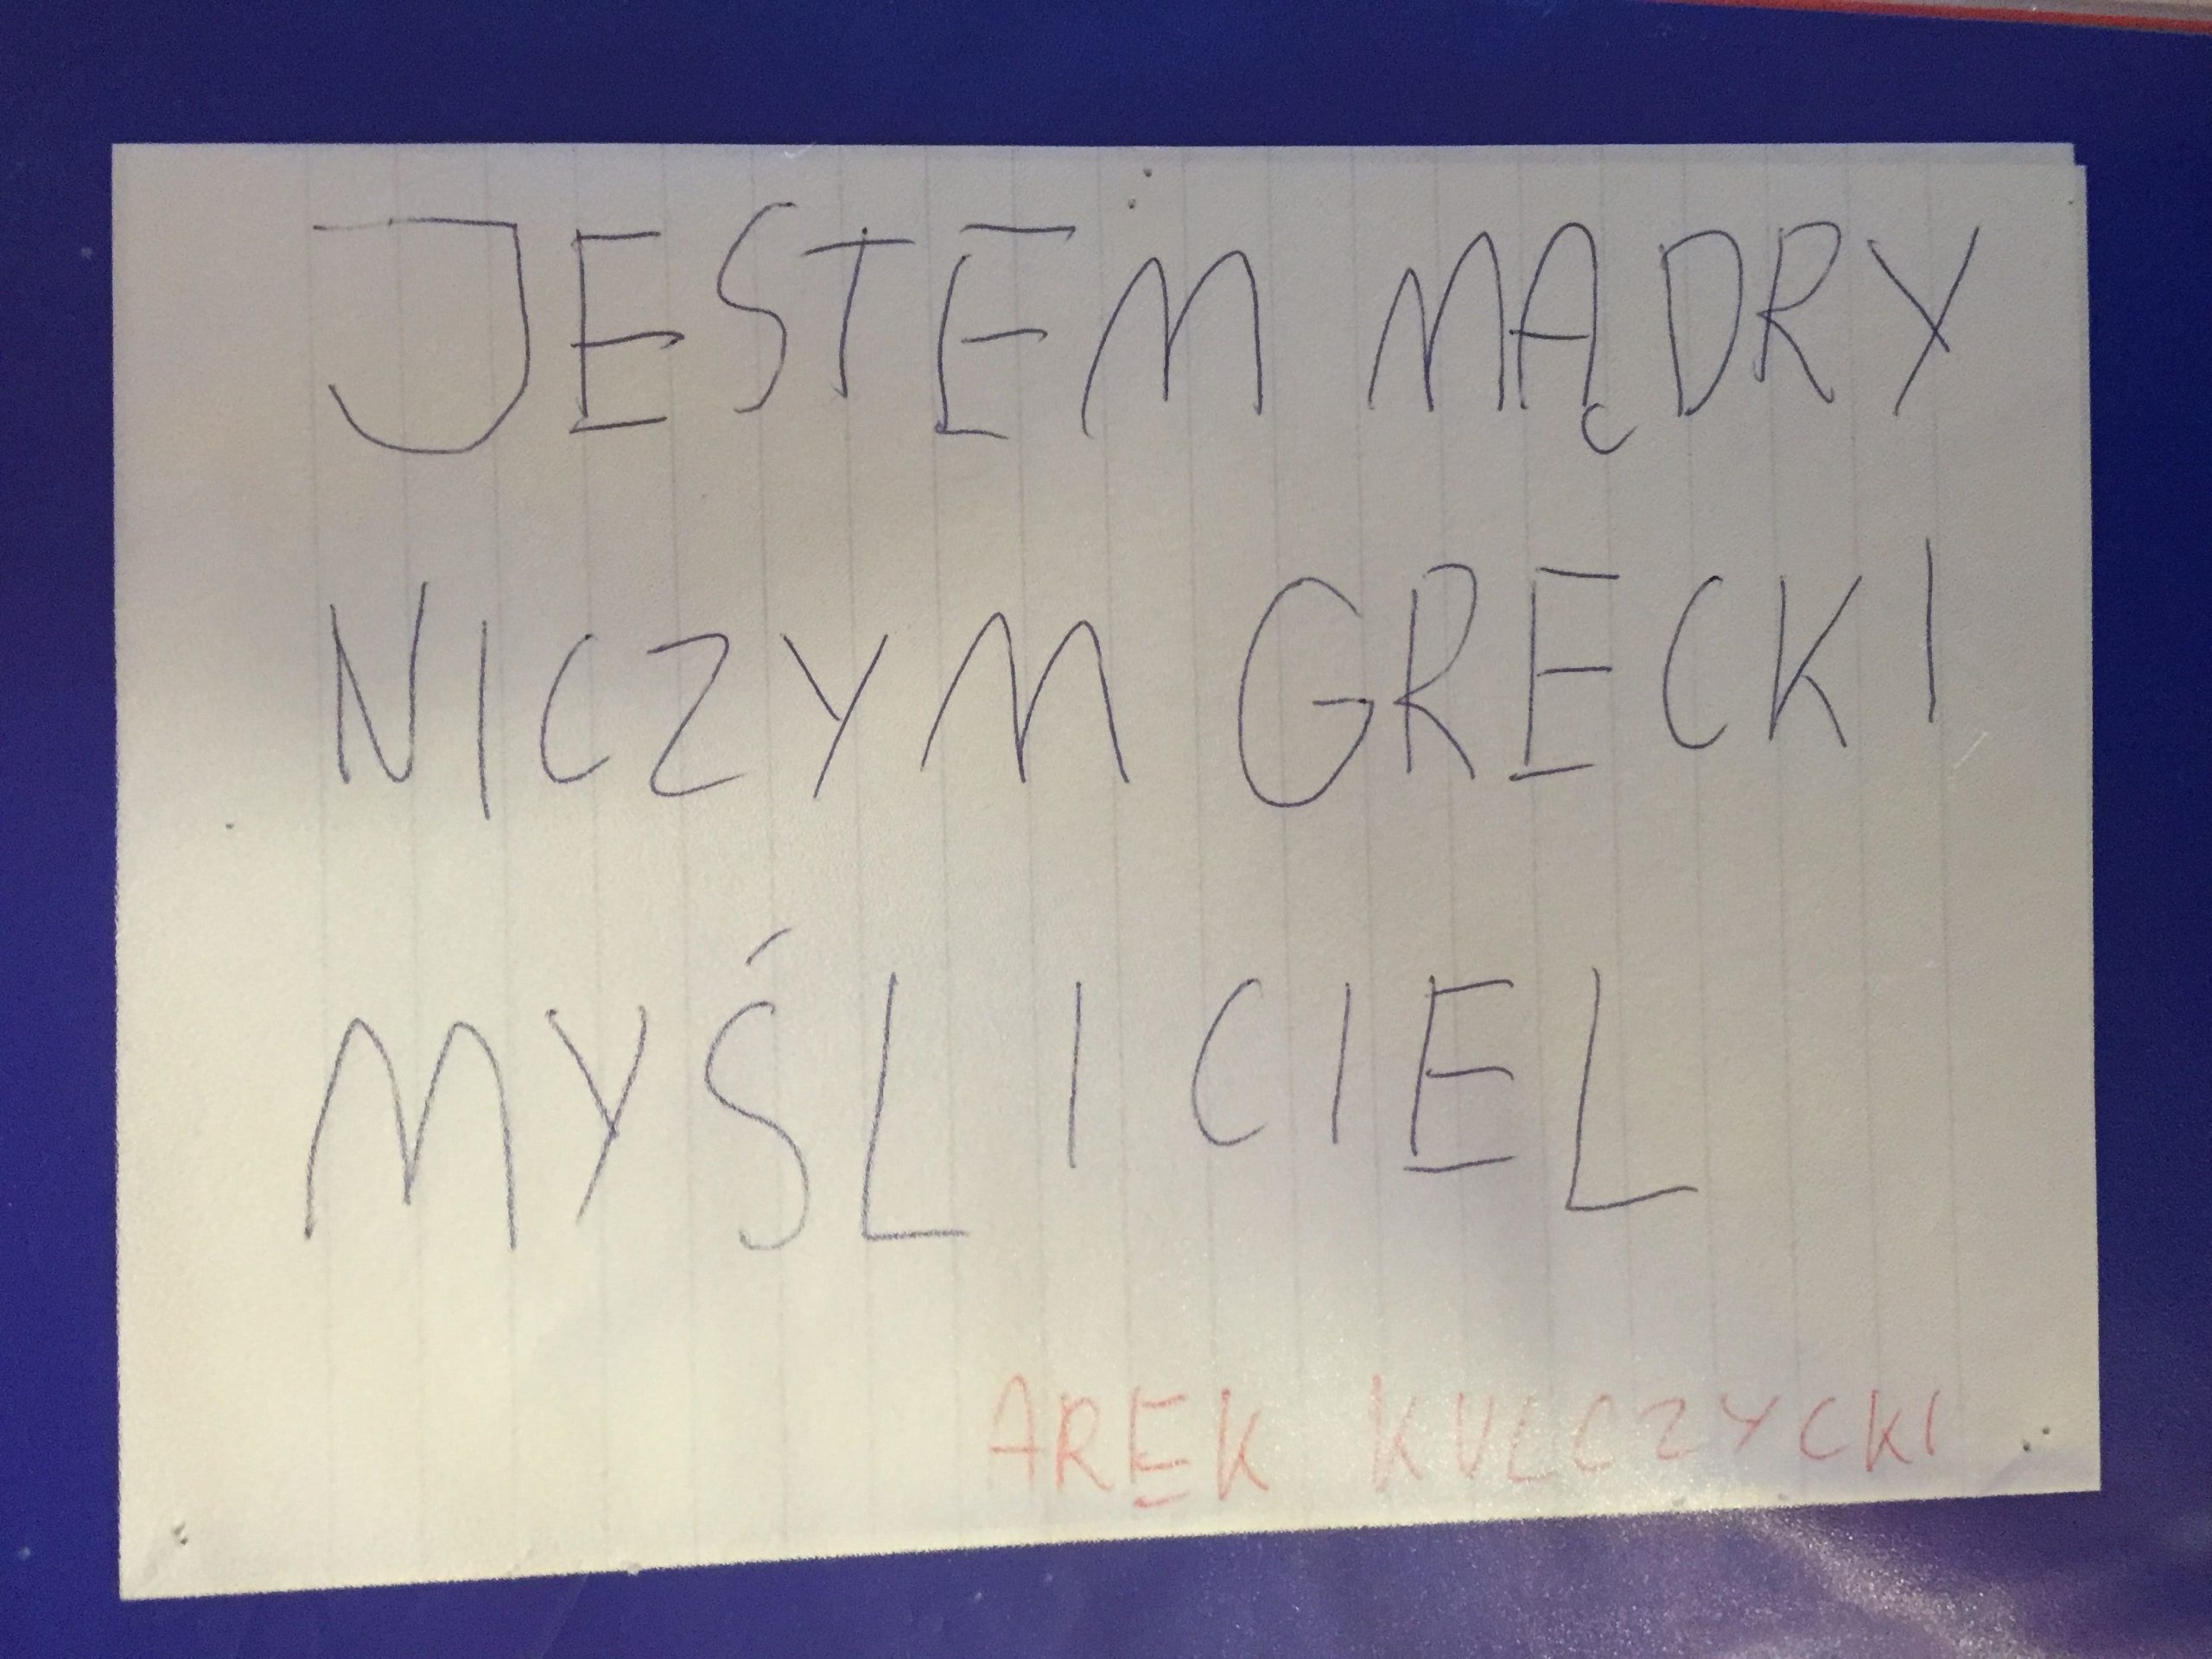 JESTEM MĄDRY
NICZYM GRECKI
MYŚLICIEL
AREK KULCZYCKI